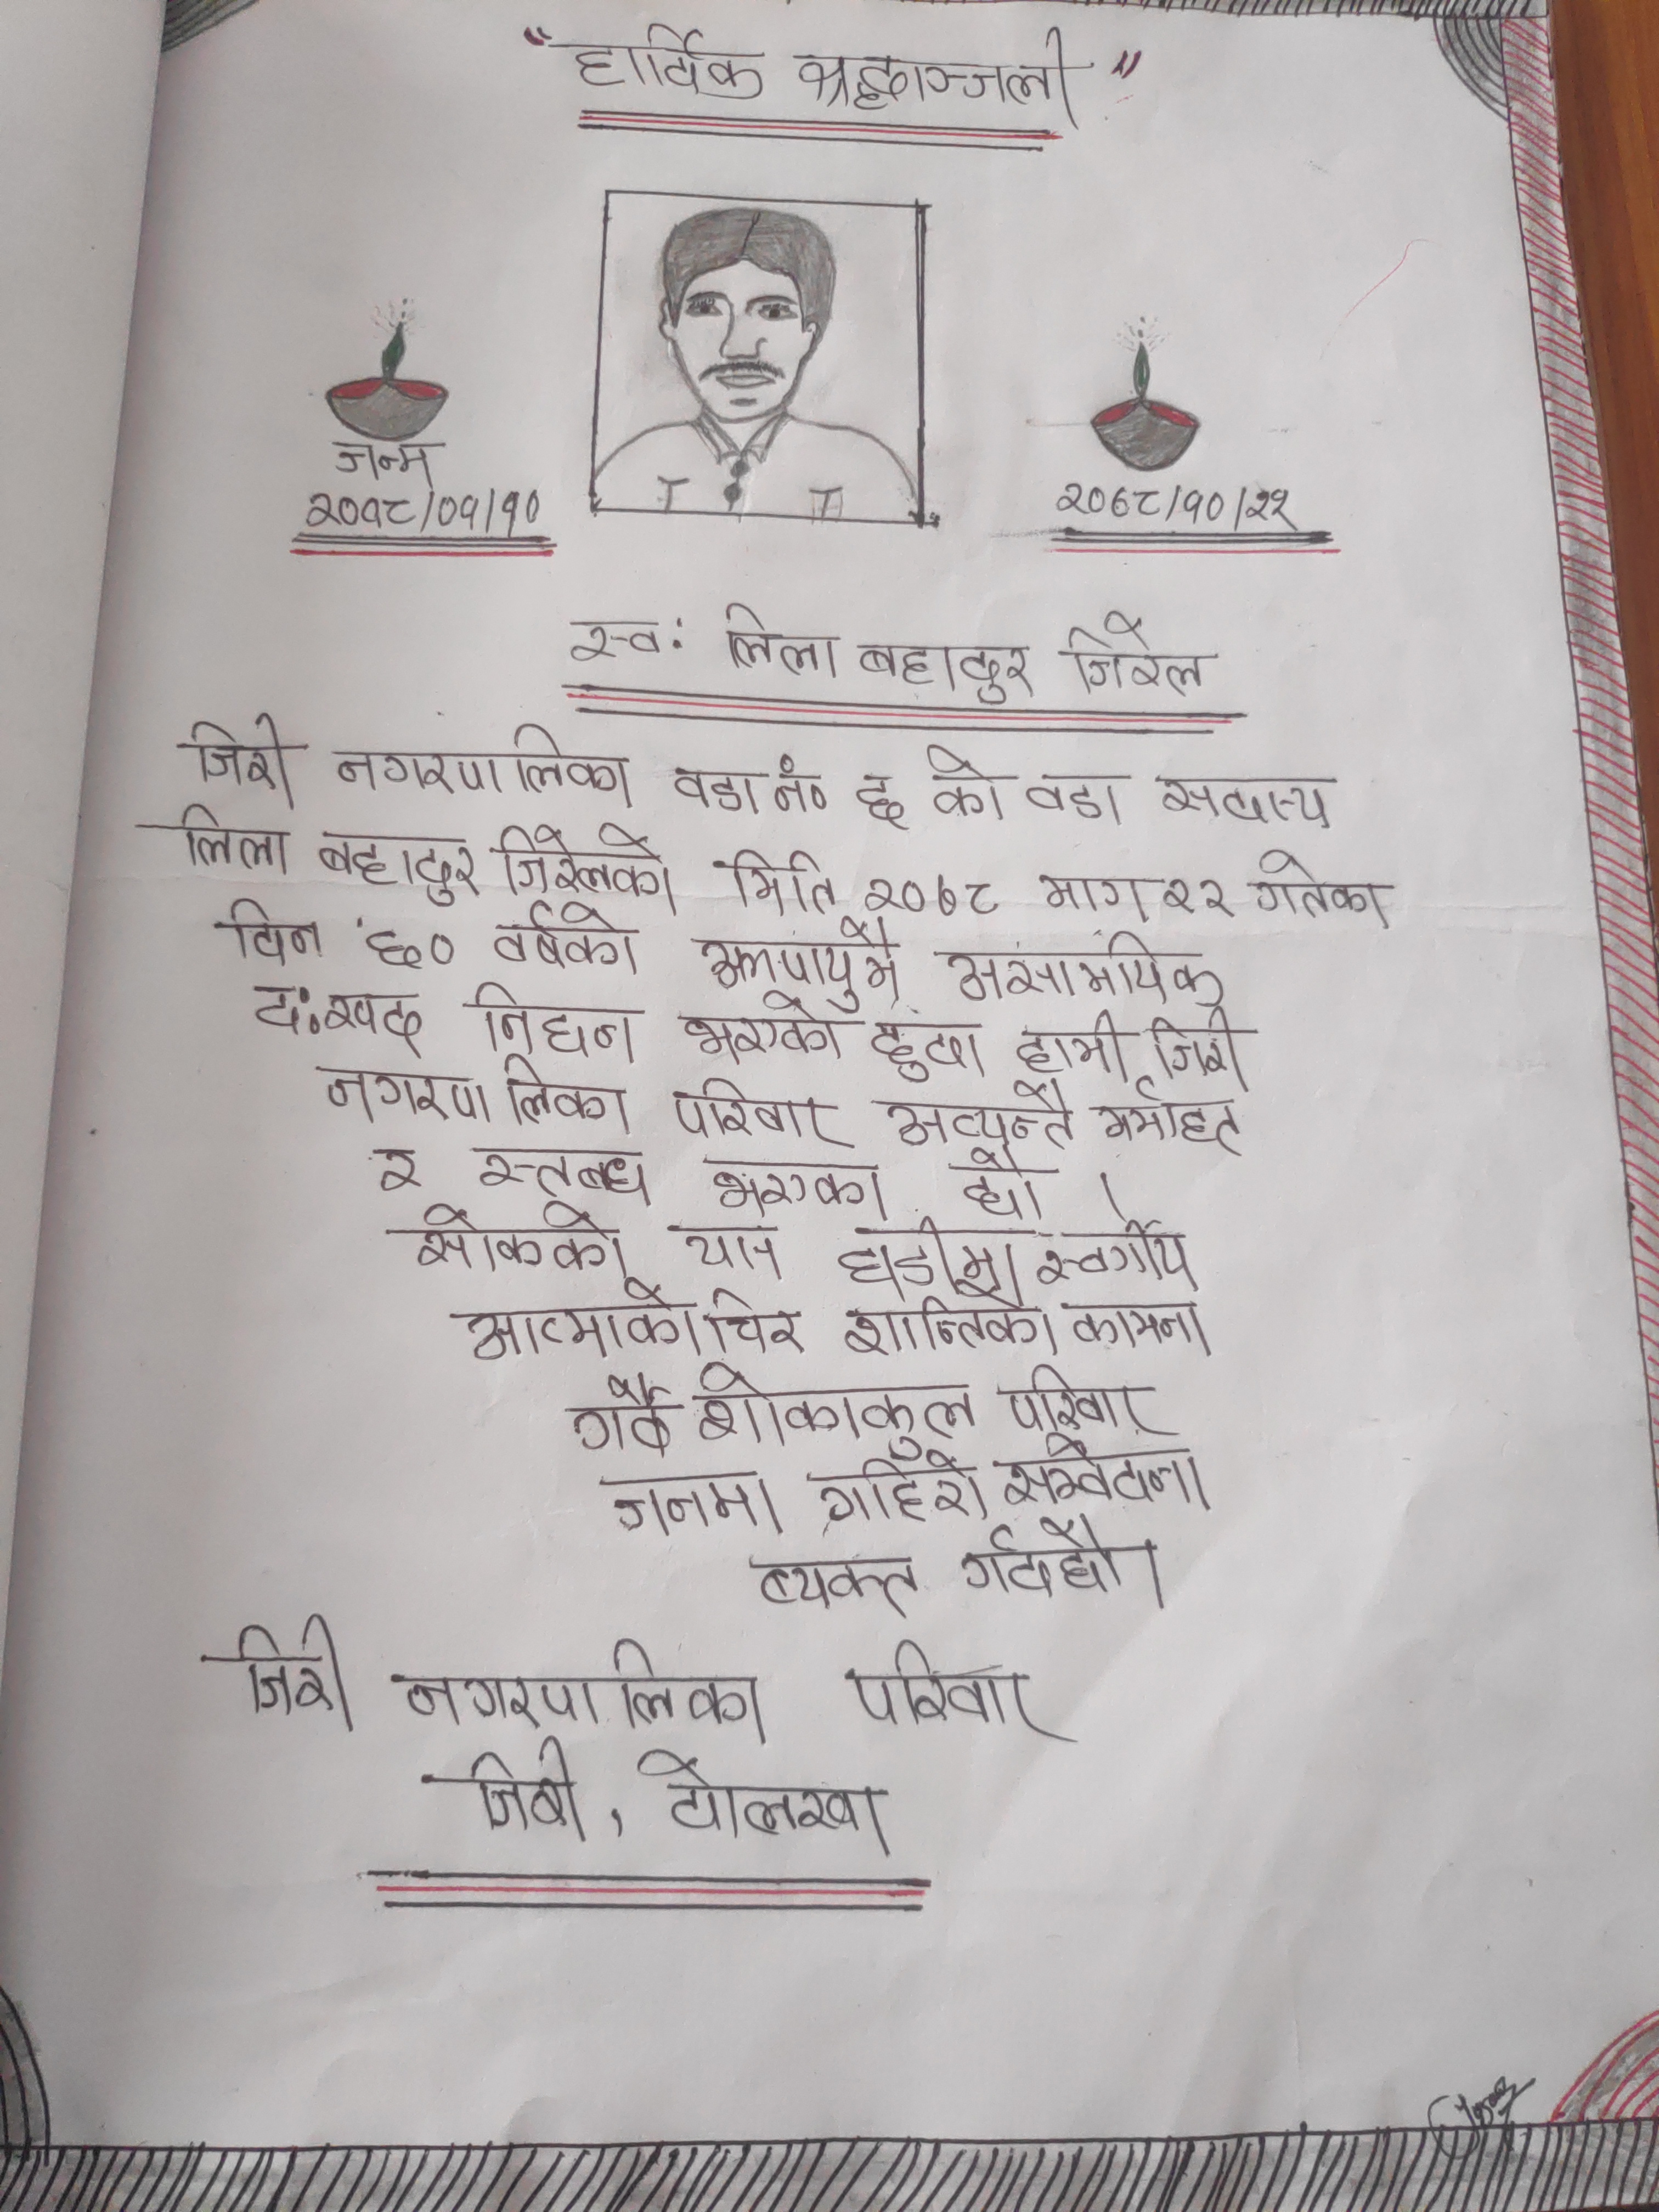 "हार्दिक श्रद्धाञ्जली"
जन्म
२०१८/०१/१०
२०७८/१०/२२
स्व: लिला बहादुर जिरेल
जिरी नगरपालिका वडा नं० ६ को वडा सदस्य
लिला बहादुर जिरेलको मिति २०७८ माग २२ गतेका
दिन ६० वर्षको अल्पायुमै असामयिक
दु:खद निधन भएको हुदा हामी जिरी
नगरपालिका परिवार अत्यन्तै मर्माहत
र स्तब्ध भएका छौ ।
सोकको यस घडीमा स्वर्गीय
आत्माको चिर शान्तिको कामना
गर्दै शोकाकुल परिवार
जनमा गहिरो सम्वेदना
ब्यक्त गर्दछौ ।
जिरी नगरपालिका परिवार
जिरी, दोलखा